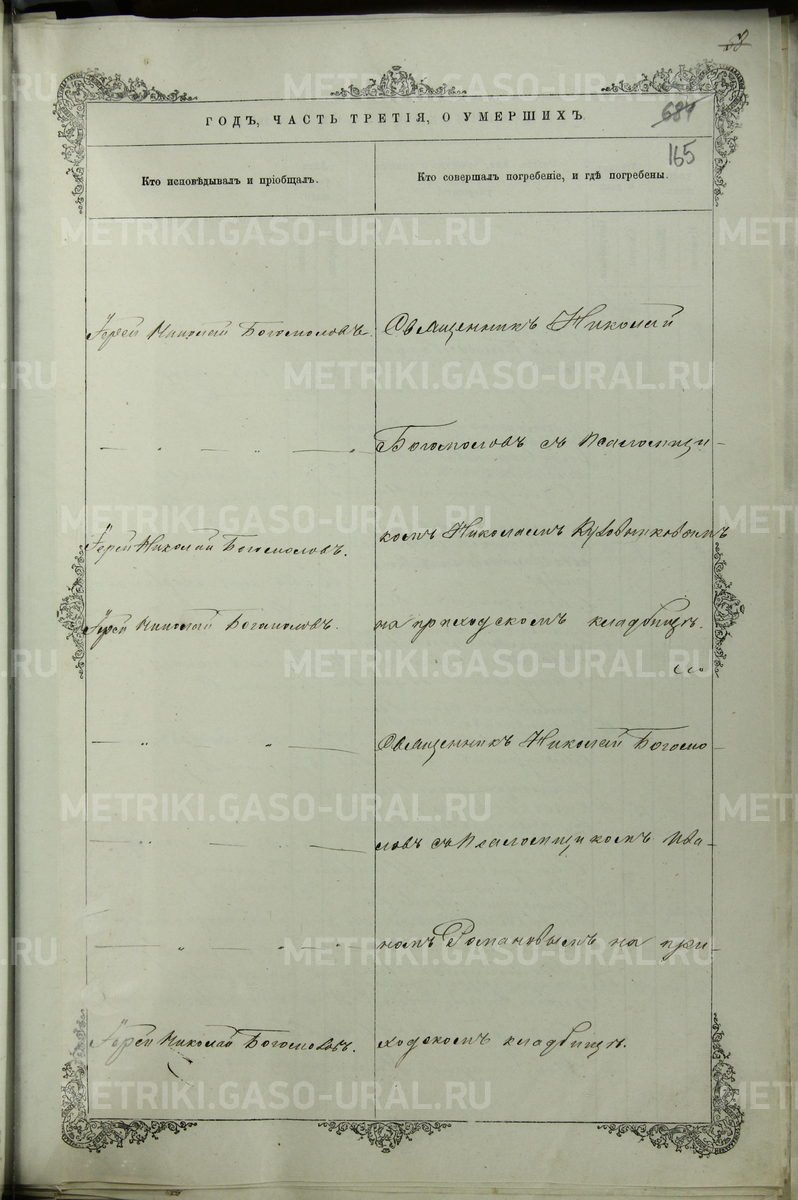 ГОДЪ, ЧАСТЬ ТРЕТІЯ, О УМЕРШИХЪ.
681
165
Кто исповѣдывалъ и пріобщалъ.
Кто совершалъ погребеніе, и гдѣ погребены.
Іерей Николай Богомоловъ.
Священникъ Николай
Богомоловъ съ псаломщи-
Іерей Николай Богомоловъ.
комъ Николаемъ
Іерей Николай Богомоловъ.
на приходскомъ кладбищѣ.
Священникъ Николай Богомо-
ловъ съ псаломщикомъ Ива-
номъ Романовымъ на при-
Іерей Николай Богомоловъ.
ходскомъ кладбищѣ.
METRIKI.GASO-URAL.RU